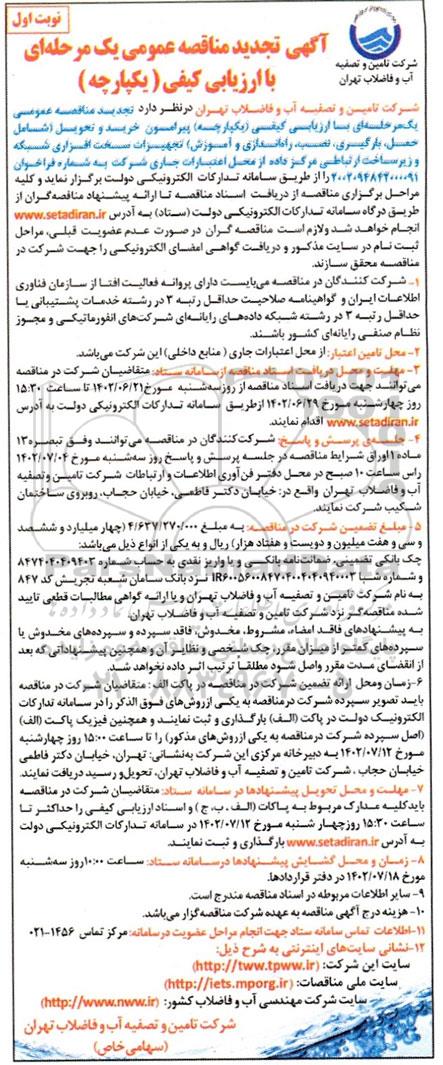 نوبت اول
شرکت تامین و تصفیه
آب و فاضلاب تهران
آگهی تجدید مناقصه عمومی یک مرحله‌ای
با ارزیابی کیفی (یکپارچه)
شرکت تامین و تصفیه آب و فاضلاب تهران درنظر دارد تجدید مناقصه عمومی
یک‌مرحله‌ای با ارزیابی کیفی (یکپارچه) پیرامون خرید و تحویل (شامل
حمل، بارگیری، نصب، راه‌اندازی و آموزش) تجهیزات سخت افزاری شبکه
و زیرساخت ارتباطی مرکز داده از محل اعتبارات جاری شرکت به شماره فراخوان
۲۰۰۲۰۹۴۸۴۲۰۰۰۰۹۱ را از طریق سامانه تدارکات الکترونیکی دولت برگزار نماید و کلیه
مراحل برگزاری مناقصه از دریافت اسناد مناقصه تا ارائه پیشنهاد مناقصه‌گران از
طریق درگاه سامانه تدارکات الکترونیکی دولت (ستاد) به آدرس www.setadiran.ir
انجام خواهد شد ولازم است مناقصه گران در صورت عدم عضویت قبلی، مراحل
ثبت نام در سایت مذکور و دریافت گواهی امضای الکترونیکی را جهت شرکت در
مناقصه محقق سازند.
۱- شرکت کنندگان در مناقصه می‌بایست دارای پروانه فعالیت افتا از سازمان فناوری
اطلاعات ایران و گواهینامه صلاحیت حداقل رتبه ۳ در رشته خدمات پشتیبانی یا
حداقل رتبه ۳ در رشته شبکه داده‌های رایانه‌ای شرکت‌های انفورماتیکی و مجوز
نظام صنفی رایانه‌ای کشور باشند.
۲- محل تامین اعتبار: از محل اعتبارات جاری (منابع داخلی) این شرکت می‌باشد.
۳- مهلت و محل دریافت اسناد مناقصه از سامانه ستاد: متقاضیان شرکت در مناقصه
می‌توانند جهت دریافت اسناد مناقصه از روز سه‌شنبه مورخ ۱۴۰۲/۰۶/۲۱ تا ساعت ۱۵:۳۰
روز چهارشنبه مورخ ۱۴۰۲/۰۶/۲۹ ازطریق سامانه تدارکات الکترونیکی دولت به آدرس
www.setadiran.ir اقدام نمایند.
۴- جلسه‌ی پرسش و پاسخ: شرکت‌کنندگان در مناقصه می‌توانند وفق تبصره۱۳
ماده ۱اوراق شرایط مناقصه در جلسه پرسش و پاسخ روز سه‌شنبه مورخ ۱۴۰۲/۰۷/۰۴
راس ساعت ۱۰ صبح در محل دفتر فن‌آوری اطلاعات و ارتباطات شرکت تامین وتصفیه
آب و فاضلاب تهران واقع در: خیابان دکتر فاطمی، خیابان حجاب، روبروی ساختمان
شکیب شرکت نمایند.
۵- مبلغ تضمین شرکت در مناقصه: به مبلغ ۴/۶۳۷/۲۷۰/۰۰۰ (چهار میلیارد و ششصد
و سی و هفت میلیون و دویست و هفتاد هزار) ریال و به یکی از انواع ذیل می‌باشد:
چک بانکی تضمینی، ضمانت‌نامه بانکی و یا واریز نقدی به حساب شماره ۸۴۷۴۰۴۰۴۰۹۴۰۳
و شماره شبا نزد بانک سامان شعبه تجریش کد ۸۴۷
به نام شرکت تامین و تصفیه آب و فاضلاب تهران و یا ارائه گواهی مطالبات قطعی تایید
شده مناقصه‌گر نزد شرکت تامین و تصفیه آب و فاضلاب تهران.
به پیشنهادهای فاقد امضاء، مشروط، مخدوش، فاقد سپرده و سپرده‌های مخدوش یا
سپرده‌های کمتر از میزان مقرر، چک شخصی و نظایر آن و همچنین پیشنهاداتی که بعد
از انقضای مدت مقرر واصل شود مطلقا ترتیب اثر داده نخواهد شد.
۶-زمان ومحل ارائه تضمین شرکت در مناقصه در پاکت الف: متقاضیان شرکت در مناقصه
باید تصویر سپرده شرکت درمناقصه به یکی ازروش‌های فوق الذکر را در سامانه تدارکات
الکترونیک دولت در پاکت (الف) بارگذاری و ثبت نمایند و همچنین فیزیک پاکت (الف)
(اصل سپرده شرکت درمناقصه به یکی ازروش‌های مذکور) را تا ساعت ۱۵:۰۰ روز چهارشنبه
مورخ ۱۴۰۲/۰۷/۱۲ به دبیرخانه مرکزی این شرکت به‌نشانی: تهران، خیابان دکتر فاطمی
خیابان حجاب ، شرکت تامین و تصفیه آب و فاضلاب تهران، تحویل و رسید دریافت نمایند.
۷- مهلت و محل تحویل پیشنهادها در سامانه ستاد: متقاضیان شرکت در مناقصه
باید کلیه مدارک مربوط به پاکات (الف ، ب، ج) و اسناد ارزیابی کیفی را حداکثر تا
ساعت ۱۵:۳۰ روزچهار شنبه مورخ ۱۴۰۲/۰۷/۱۲ در سامانه تدارکات الکترونیکی دولت
به آدرس www.setadiran.ir بارگذاری و ثبت نمایند.
۸- زمان و محل گشایش پیشنهادها درسامانه ستاد: ساعت ۱۰:۰۰روز سه‌شنبه
مورخ ۱۴۰۲/۰۷/۱۸ در دفتر قراردادها.
۹- سایر اطلاعات مربوطه در اسناد مناقصه مندرج است.
۱۰- هزینه درج آگهی مناقصه به عهده شرکت مناقصه‌گزار می‌باشد.
۱۱-اطلاعات تماس سامانه ستاد جهت انجام مراحل عضویت درسامانه: مرکز تماس ۱۴۵۶-۰۲۱
۱۲-نشانی سایت‌های اینترنتی به شرح ذیل:
سایت این شرکت: (http://tww.tpww.ir)
سایت ملی مناقصات: (http://iets.mporg.ir)
سایت شرکت مهندسی آب و فاضلاب کشور: (http://www.nww.ir)
شرکت تامین و تصفیه آب و فاضلاب تهران
(سهامی خاص)